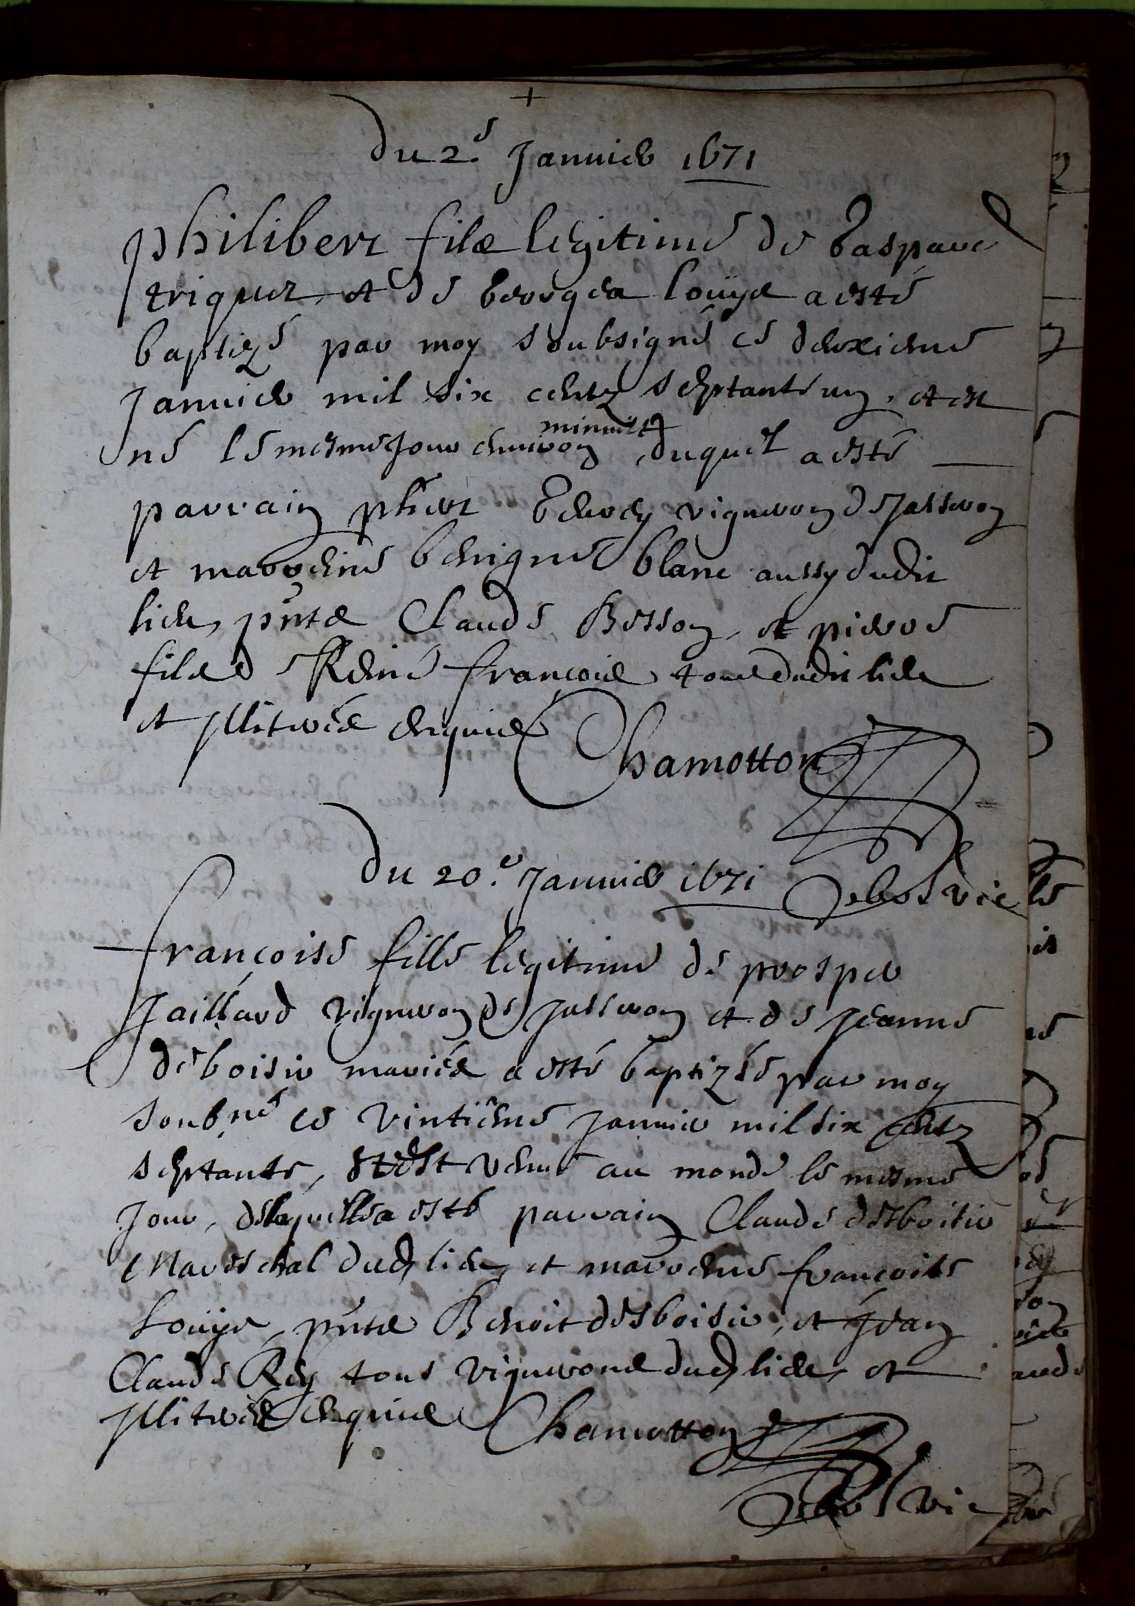 +
Du 2e Janvier 1671
philibert filz legitime de Gaspard
triquet et de Georgea Loüye a esté
baptizé par moy soubsigné ce deuxieme
Janvier mil six centz septante un, et est
né le mesme Jour environ minuict, duquel a esté
parrain phert vigneron de Jasseron
et marreine benigne blanc aussy dudit
lieu, pñts Claude Besson, et pierre
filz d René françois tous dudit lieu
et illitrés enquis Chamotton
Du 20e Janvier 1671
françoise fille legitime de prosper
Jaillard vigneron de Jasseron et de Jeanne
deboisir mariés a esté baptizée par moy
soubné ce vintiême Janvier mil six centz
septante, et est venue au monde le mesme
Jour, de laquelle a esté parrain Claude desboisir
Mareschal dud lieu, et marreine françoise
Loüye, pñts Benoit desboisir, et Jean
Claude Rey tous vignerons dud lieu, et
illitrés enquis Chamotton
vic